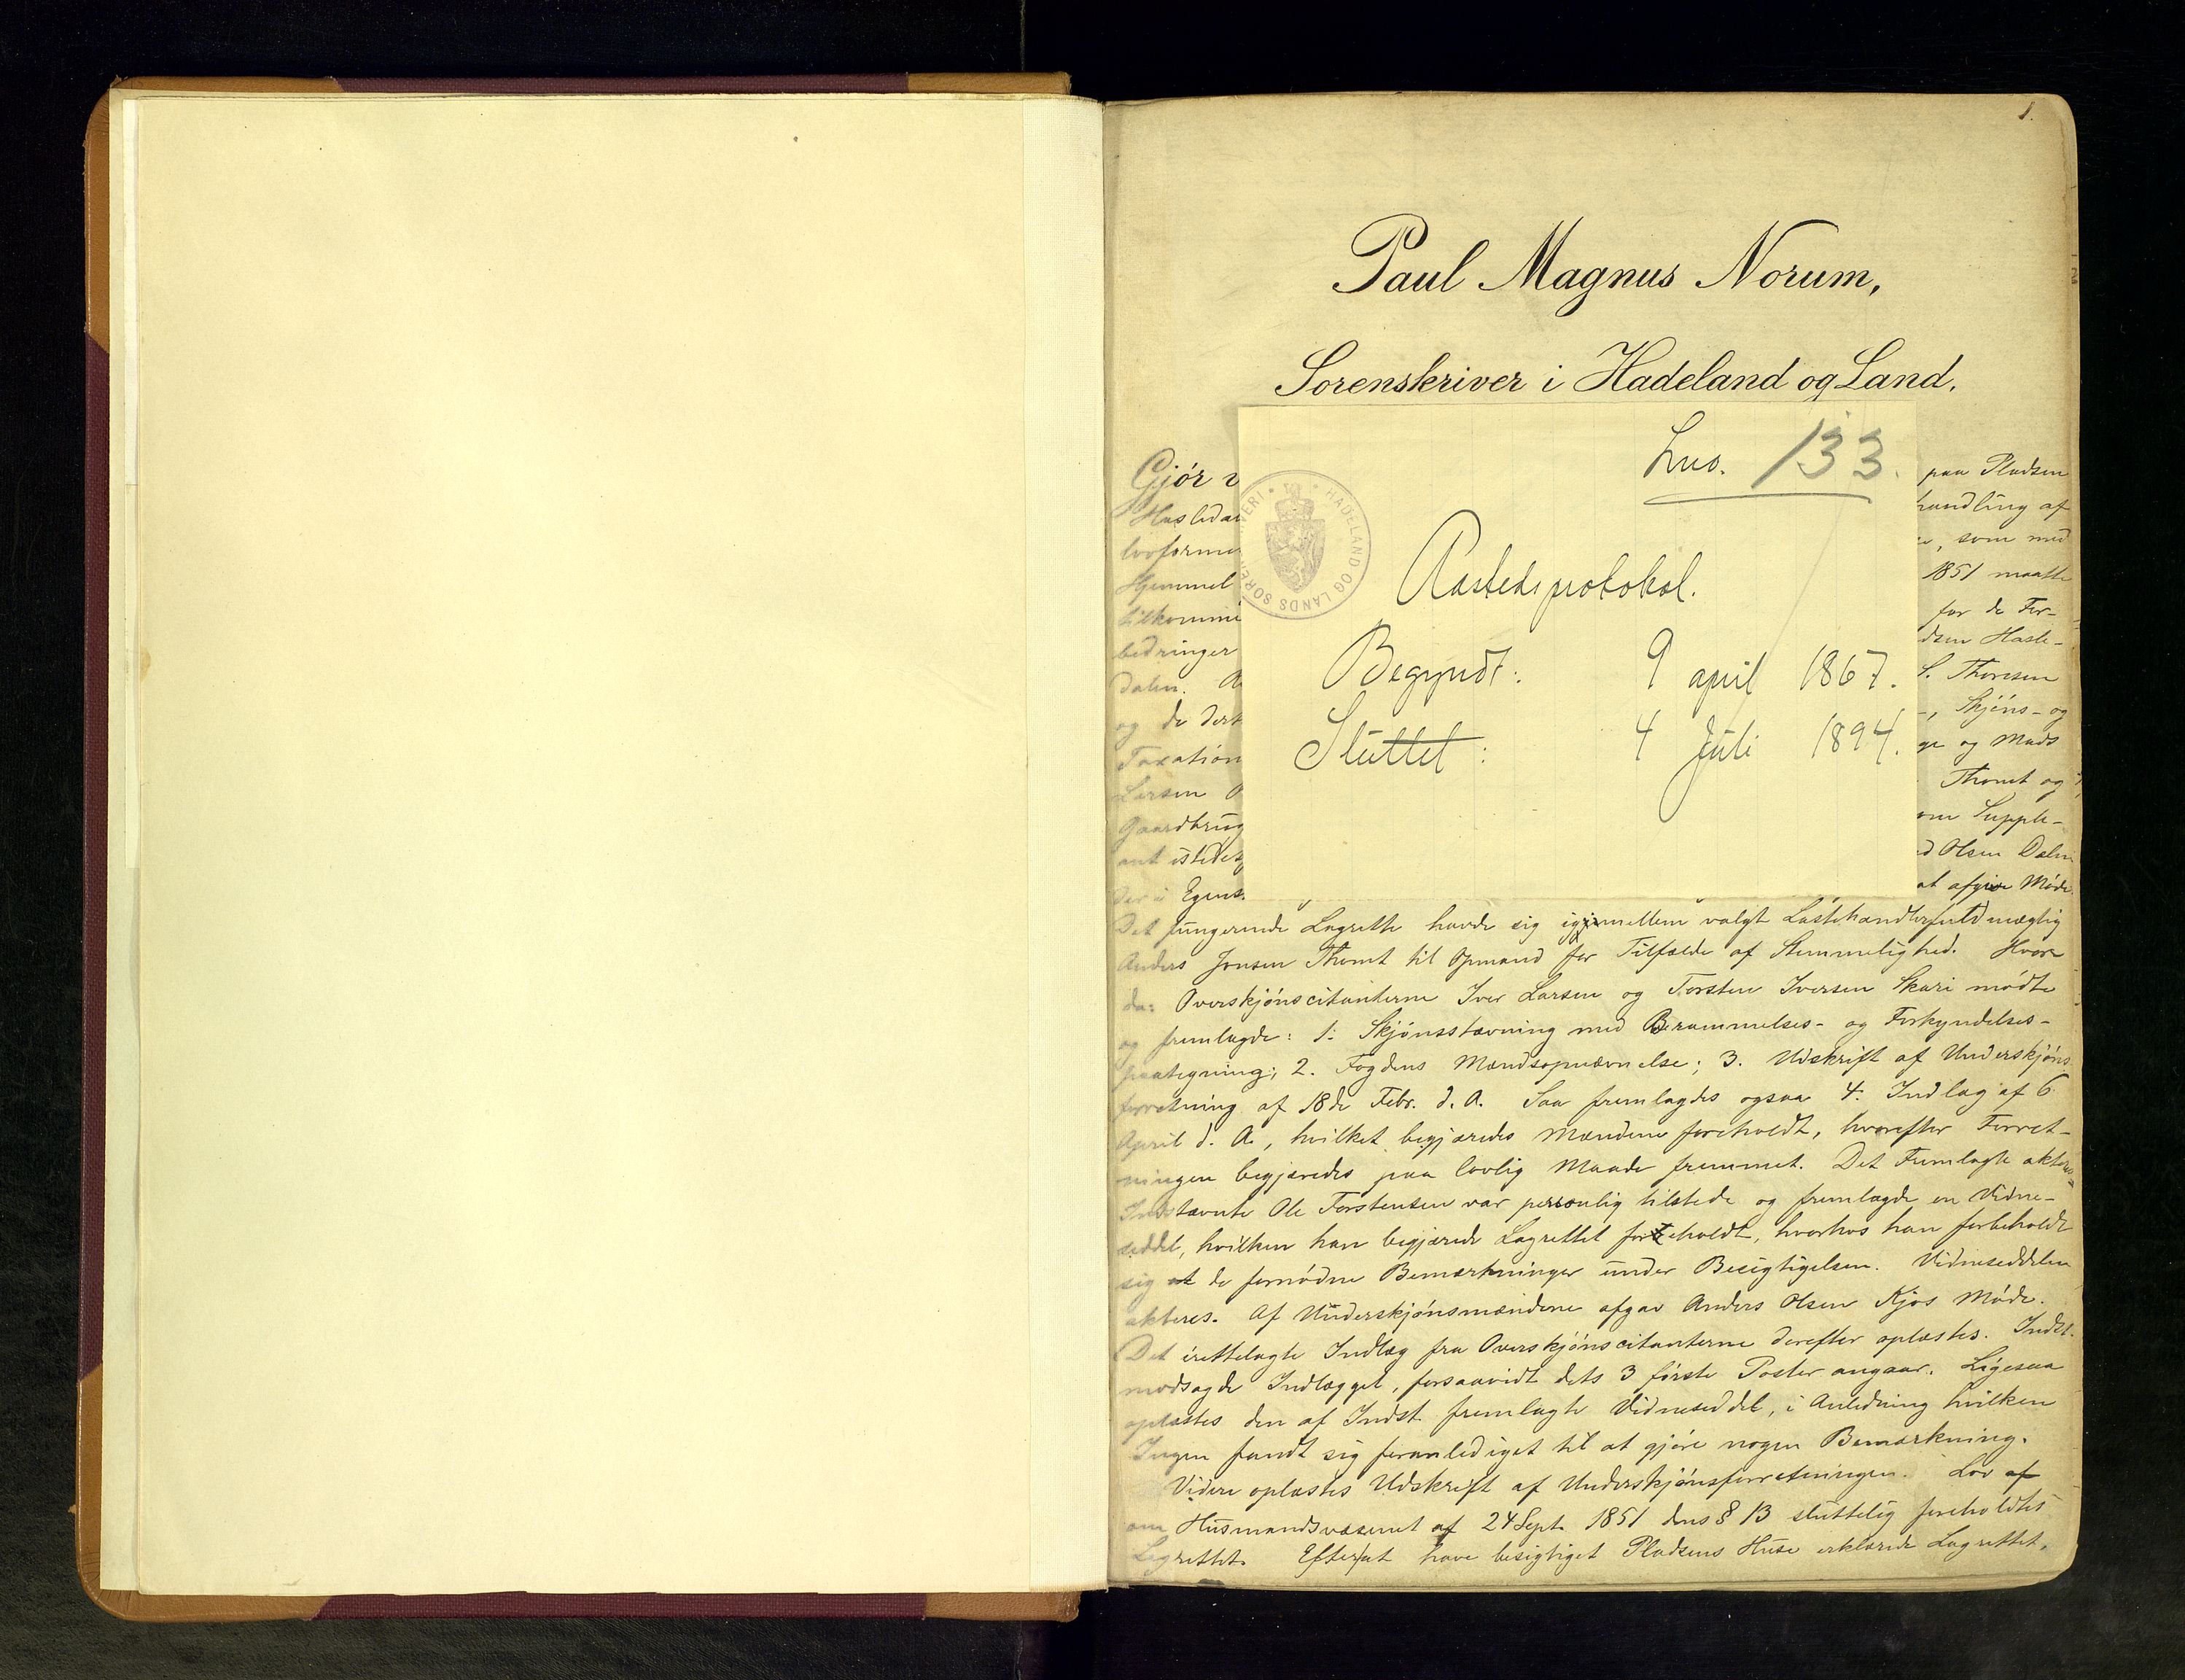 1.
Paul Magnus Norum,
Sorenskriver i Hadeland og Land.
Lno. 133.
HADELAND OG LANDS SORENSKRIVERI
Aastedsprotokol.
Begyndt: 9 april 1867.
Sluttet: 4 Juli 1894.
Gjør v paa Pladsen
Hasledal handling af
lovforme som med
Hjemmel 1851 maatte
tilkomme for de For-
bedringer dsen Hasle-
dalen. A S. Thoresen
og de dert Skjøns- og
Taxation ge og Mads
Larsen Thomt og
Gaardbrug om Supple-
ant istedet d Olsen Dalen
der i Egens. at afgive Møde.
Det fungerende Lagrette havde sig igjimellem valgt Lastehandlerfuldmægtig
Anders Jonsen Thomt til Opmand for Tilfælde af Stemmelighed. Hvor-
da: Overskjønscitanterne Iver Larsen og Torsten Iversen Skari mødte
og fremlagde: 1. Skjønsstævning med Berammelses- og Forkyndelses-
paategning; 2. Fogdens Mandsopnævnelse; 3. Udskrift af Underskjøns-
forretning af 18de Febr. d. A. Saa fremlagdes ogsaa 4. Indlæg af 6
April d. A., hvilket begjæredes Mændene foreholdt, hvorefter Forret-
ningen begjæredes paa lovlig Maade fremmet. Det Fremlagte akteres
Indstævnte Ole Torstensen var personlig tilstede og fremlagde en Vidne-
seddel, hvilken han begjærede Lagrettet foreholdt, hvorhos han forbeholdt
sig at de fornødne Bemærkninger under Besigtigelsen. Vidneseddelen
akteres. Af Underskjønsmændene afgav Anders Olsen Kjos Møde.
Det irettelagte Indlæg fra Overskjønscitanterne derefter oplæstes. Indst.
modsagde Indlægget, forsaavidt dets 3 første Poster angaar. Ligesaa
oplæstes den af Indst. fremlagte Vidneseddel, i Anledning hvilken
Ingen fandt sig foranlediget til at gjøre nogen Bemærkning.
Videre oplæstes Udskrift af Underskjønsforretningen. Lov af
om Husmandsvæsenet af 24 Sept. 1851 dens § 13 sluttelig foreholdtes
Lagrettet. Efter at have besigtiget Pladsens Huse erklærede Lagrettet,